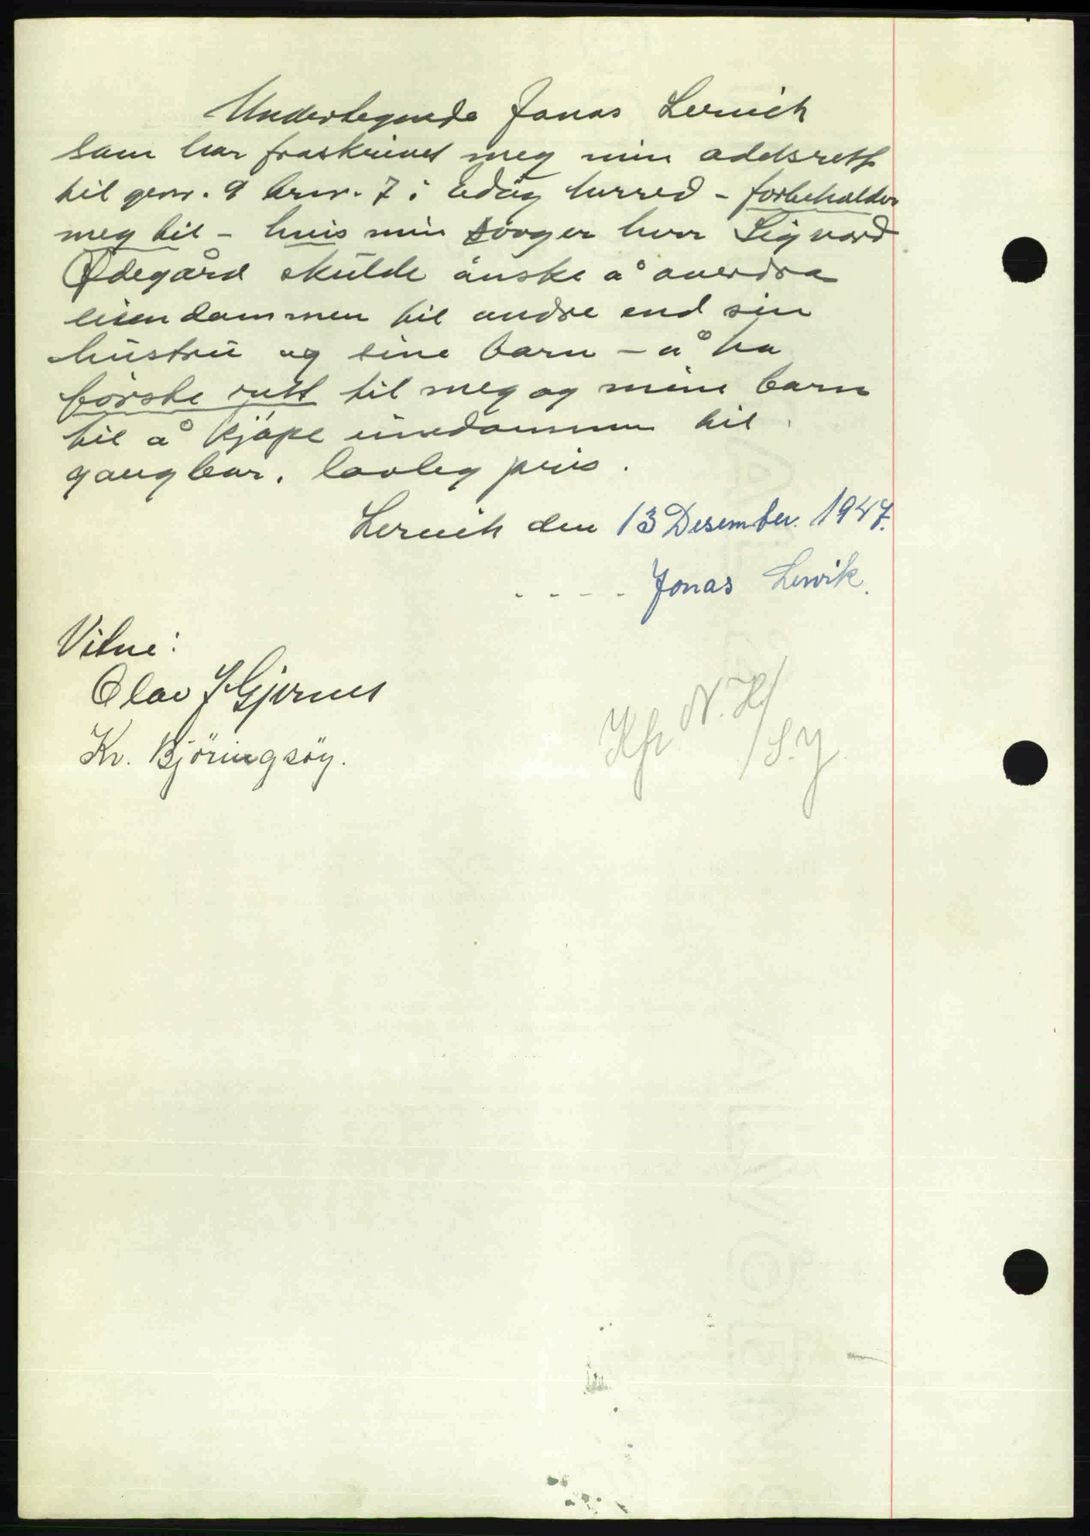 Undertegnede Jonas Lervik
som har fraskrivet meg min oddsrett
til gnr. 9 brnr. 7 i Edöy herred - forbeholder
meg til - hvis min svoger herr Sigvard
Ødegård skulde önske å overdra
eiendommen til andre end sin
hustru og sine barn - å ha
förste rett til meg og mine barn
til å kjöpe eiendommen til
gangbar, lovleg pris.
Lervik den 13 Desember. 1947.
- - - - Jonas Lervik.
Vitne:
Olav J Gjernes
Kr. Björingsöy.
N.H/
S.J.